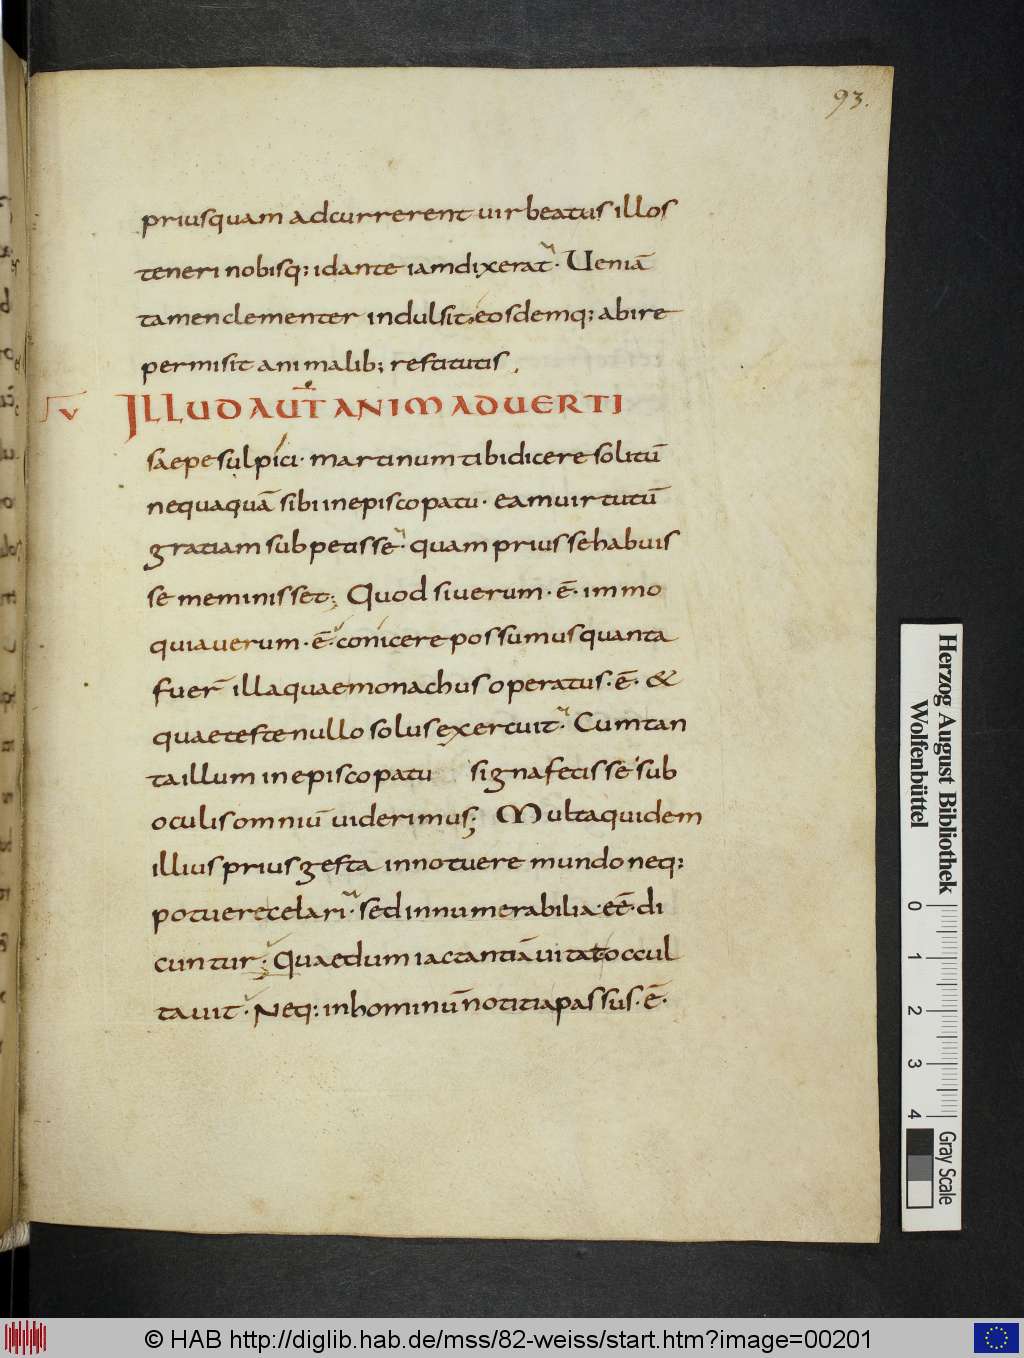 93.
priusquam adcurrerent uir beatus illos
teneri nobisq; id ante iam dixerat. Ueniā
tamen clementer indulsit. eosdemq; abire
permisit animalib; restitutis.
IV ILLUD AUT̄ ANIMADUERTI
saepe sulpici. martinum tibi dicere solitū
nequaquā sibi in episcopatu. eam uirtutū
gratiam subpetisse. quam prius se habuis
se meminisset; Quod si uerum. ē. immo
quia uerum. ē. conicere possumus quanta
fuer̄ illa quae monachus operatus. ē. &
quae teste nullo solus exercuit. Cum tan
ta illum in episcopatu signa fecisse sub
oculis omniū uiderimus; Multa quidem
illius prius gesta innotuere mundo neq;
potuere celari. sed innumerabilia. eē. di
cuntur; Quae dum iactantiā uitat occul
tauit. Neq; in hominū notitia passus. ē.
Herzog August Bibliothek
Wolfenbüttel
0 1 2 3 4
Gray Scale
© HAB http://diglib.hab.de/mss/82-weiss/start.htm?image=00201